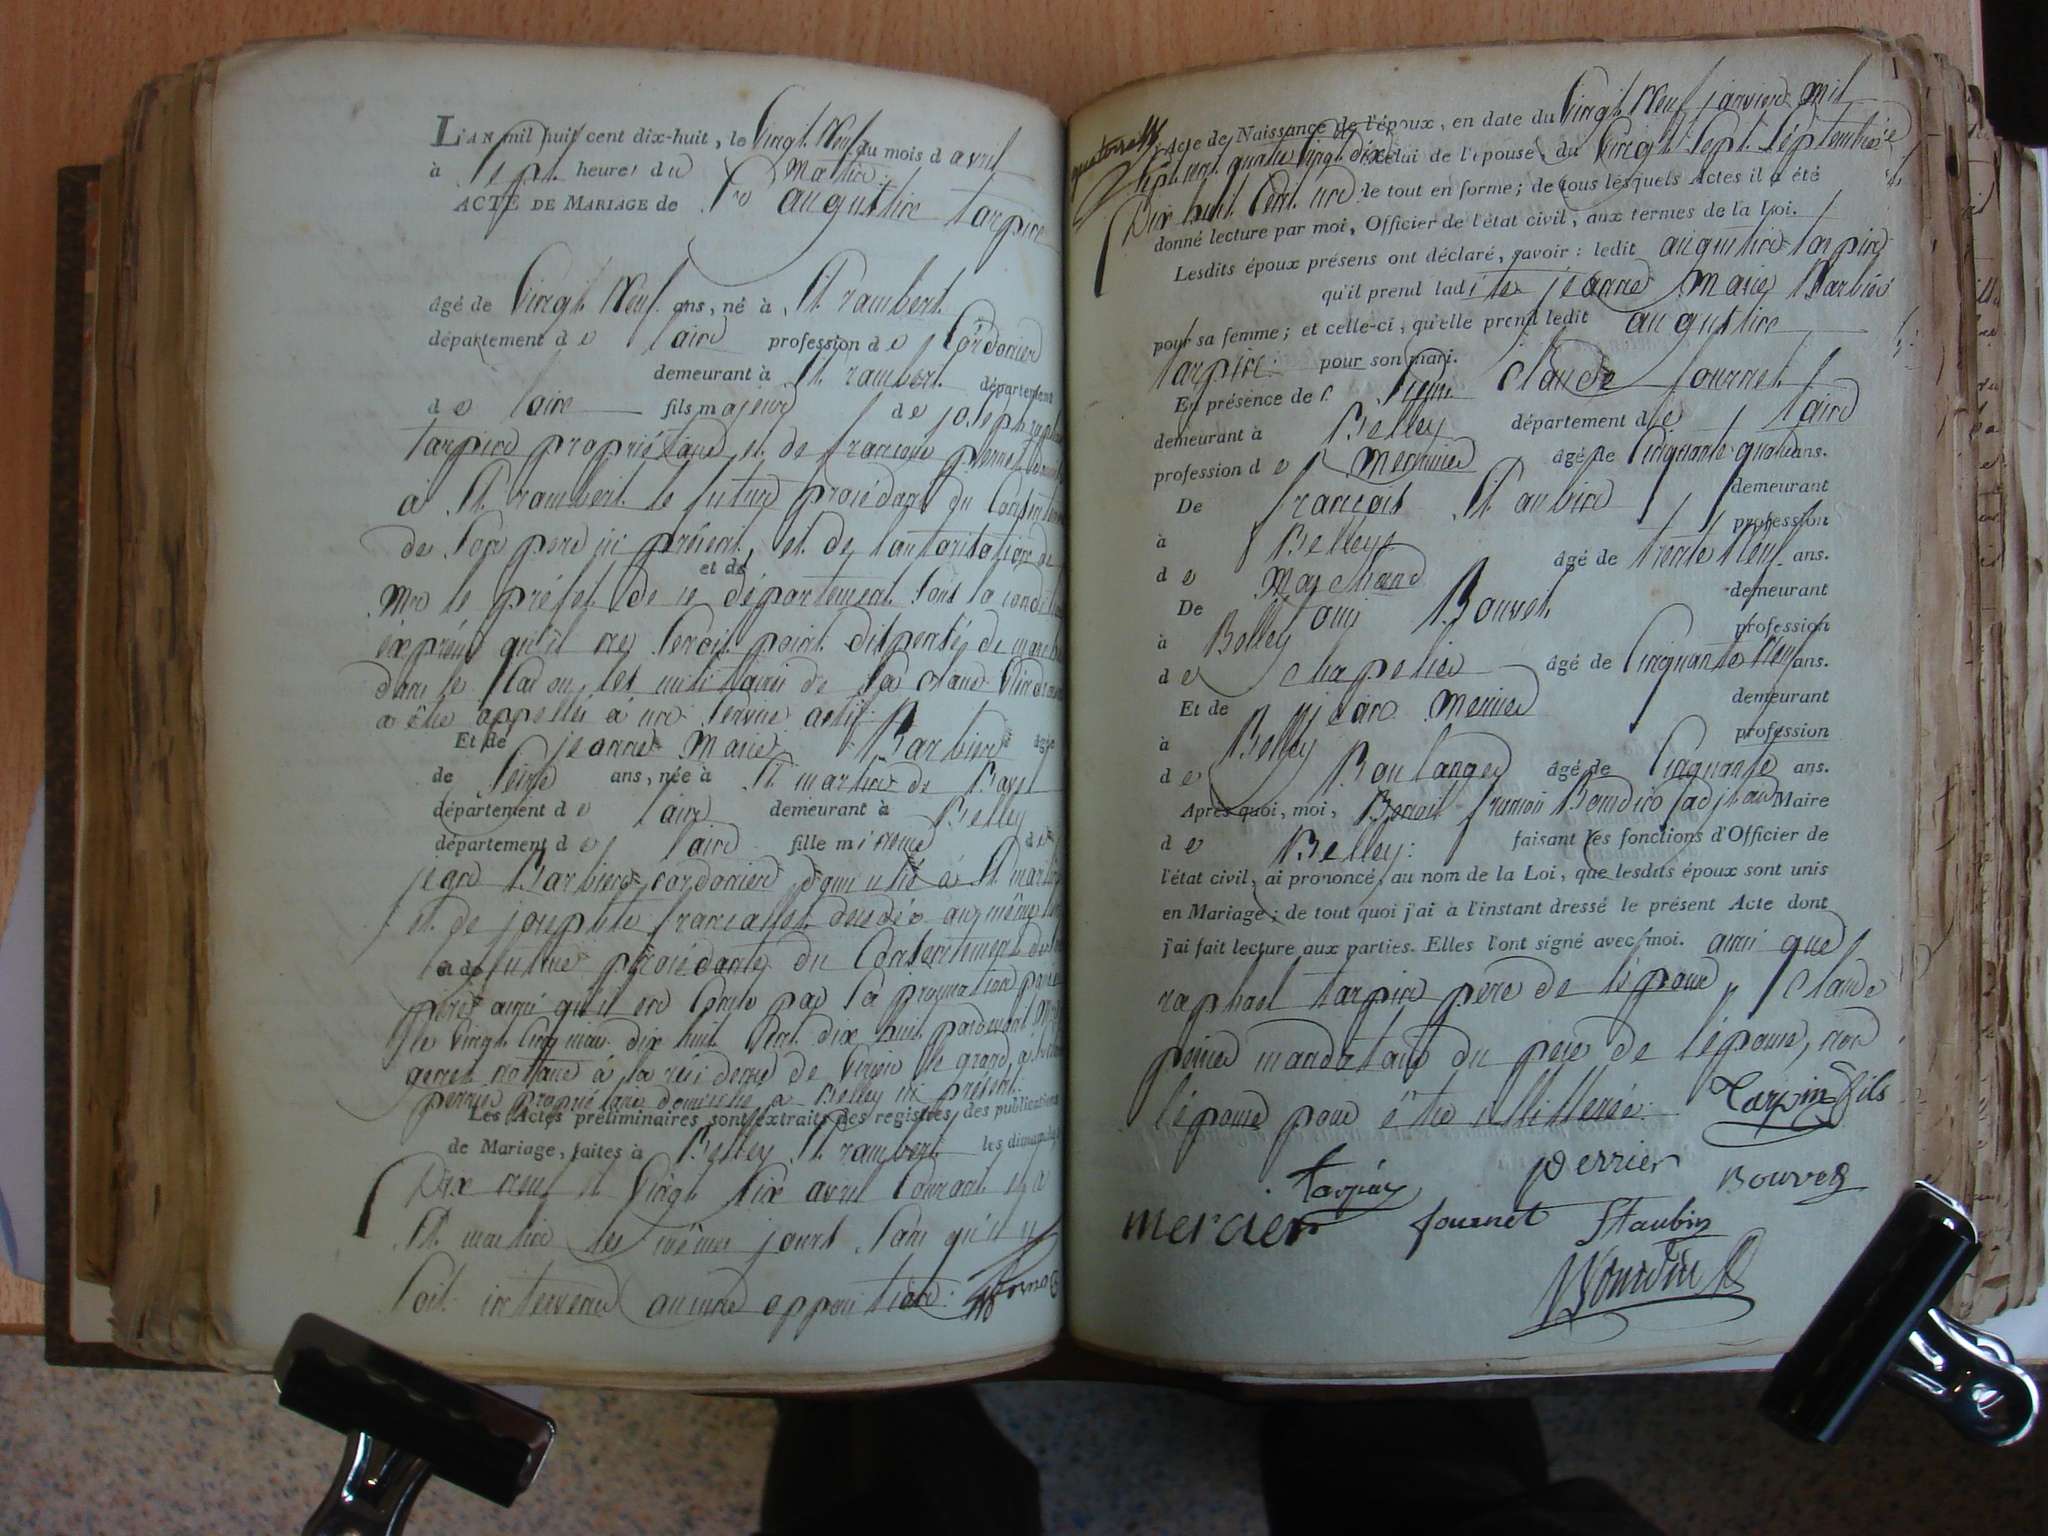 L'AN mil huit cent dix-huit, le Vingt Neuf du mois d avril
à Sept heures du Matin.
ACTE DE MARIAGE de Sr augustin tarpin
âgé de Vingt Neuf ans, né à St. rambert
département de lain profession de Cordonier
demeurant à St. rambert département
de lain fils majeur de joseph raphael
tarpin propriétaire et de francoise
à St. rambert le futur procédant du Consentement
de Son pere ici présent, et de l'autorisation de
et de
Mr le préfet de ce département Sous la condition
expresse qu'il ne Seroit point dispensé de
dans le Cas ou les militaires de Sa classe viendroient
a être appellés à un Service actif.
Et de jeanne Marie Barbier âgée
de Seize ans, née à St martin de Bavel
département de lain demeurant à Belley
département de lain fille mineure de
jean Barbier cordonier domicilié à St. martin
et de josephte francallet decedée au même lieu
et de
la future procédante du Consentement de Son
pere ainsi qu'il en Conste par la procuration passée
le Vingt Cinq mars dix huit Cent dix huit pardevant Me
notaire à la résidence de Virieu le grand, à
perrier propriétaire domicilié à Belley ici présent.
Les Actes préliminaires sont extraits des registres des publications
de Mariage, faites à Belley St. rambert les dimanches
Dix neuf et Vingt Six avril Courant et à
St. martin les mêmes jours Sans qu'il y
Soit intervenu aucune opposition.
L'Acte de Naissance de l'époux, en date du Vingt Neuf janvier mil
Sept cent quatre Vingt dix celui de l'épouse, du Vingt Sept Septembre
Dix huit Cent un le tout en forme; de tous lesquels Actes il a été
donné lecture par moi, Officier de l'état civil, aux termes de la Loi.
Lesdits époux présens ont déclaré, savoir: ledit augustin tarpin
qu'il prend ladite jeanne Marie Barbier
pour sa femme; et celle-ci, qu'elle prend ledit augustin
tarpin pour son mari.
En présence de Sieur Claude fournet
demeurant à Belley département de lain
profession de Menuisier âgé de Cinquante quatre ans.
De françois St. aubin demeurant
à Belley profession
de Marchand âgé de trente Neuf ans.
De Bouvet demeurant
à Belley profession
de Chapelier âgé de Cinquante Neuf ans.
Et de jean Mercier demeurant
à Belley profession
de Boulanger âgé de Cinquante ans.
Après quoi, moi, Benoit francois Baudin adjoint Maire
de Belley: faisant les fonctions d'Officier de
l'état civil, ai prononcé, au nom de la Loi, que lesdits époux sont unis
en Mariage; de tout quoi j'ai à l'instant dressé le présent Acte dont
j'ai fait lecture aux parties. Elles l'ont signé avec moi. ainsi que
raphael tarpin pere de l'époux, Claude
perrier mandataire du pere de l'épouse, non
l'épouse pour être illitterée. Tarpin fils
tarpin perrier Bouvet
mercier fournet Staubin